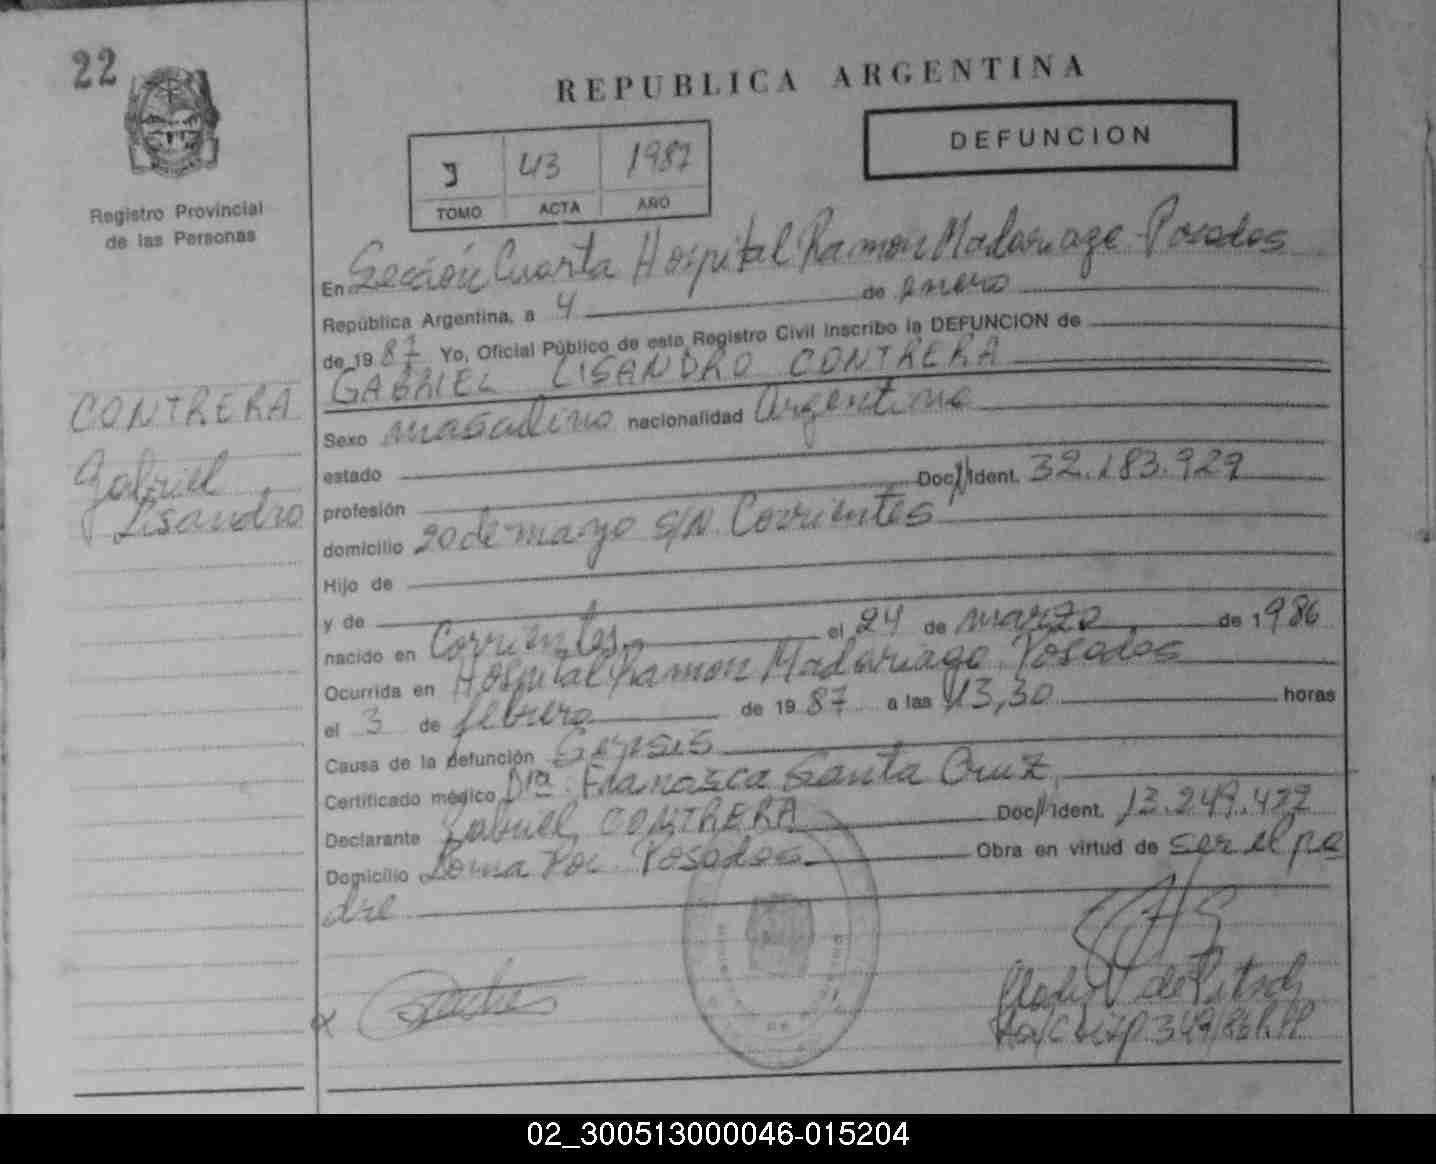 22
REPUBLICA ARGENTINA
DEFUNCION
43 1987
TOMO ACTA AÑO
Registro Provincial
de las Personas
En Sección Cuarta Hospital Ramon Madariaga - Posadas
República Argentina, a 4 de enero
de 1987 Yo, Oficial Público de esta Registro Civil inscribo la DEFUNCION de
GABRIEL LISANDRO CONTRERA
CONTRERA
Gabriel
Lisandro
Sexo masculino nacionalidad Argentino
estado
Doc. Ident. 32.183.929
profesión
domicilio 20 de mayo S/N. Corrientes
Hijo de
y de
nacido en Corrientes el 24 de marzo de 1986
Ocurrida en Hospital Ramon Madariaga. Posadas
el 3 de febrero de 1987 a las 13,30 horas
Causa de la defunción Sepsis
Certificado médico Dra. Francisca Santa Cruz
Declarante Gabriel CONTRERA Doc. Ident.
Domicilio Loma Poi. Posadas Obra en virtud de ser el pa
dre
02_300513000046-015204